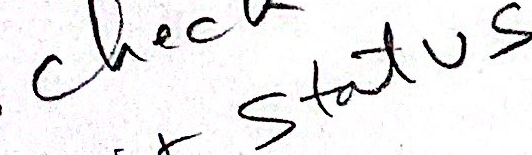 check
status